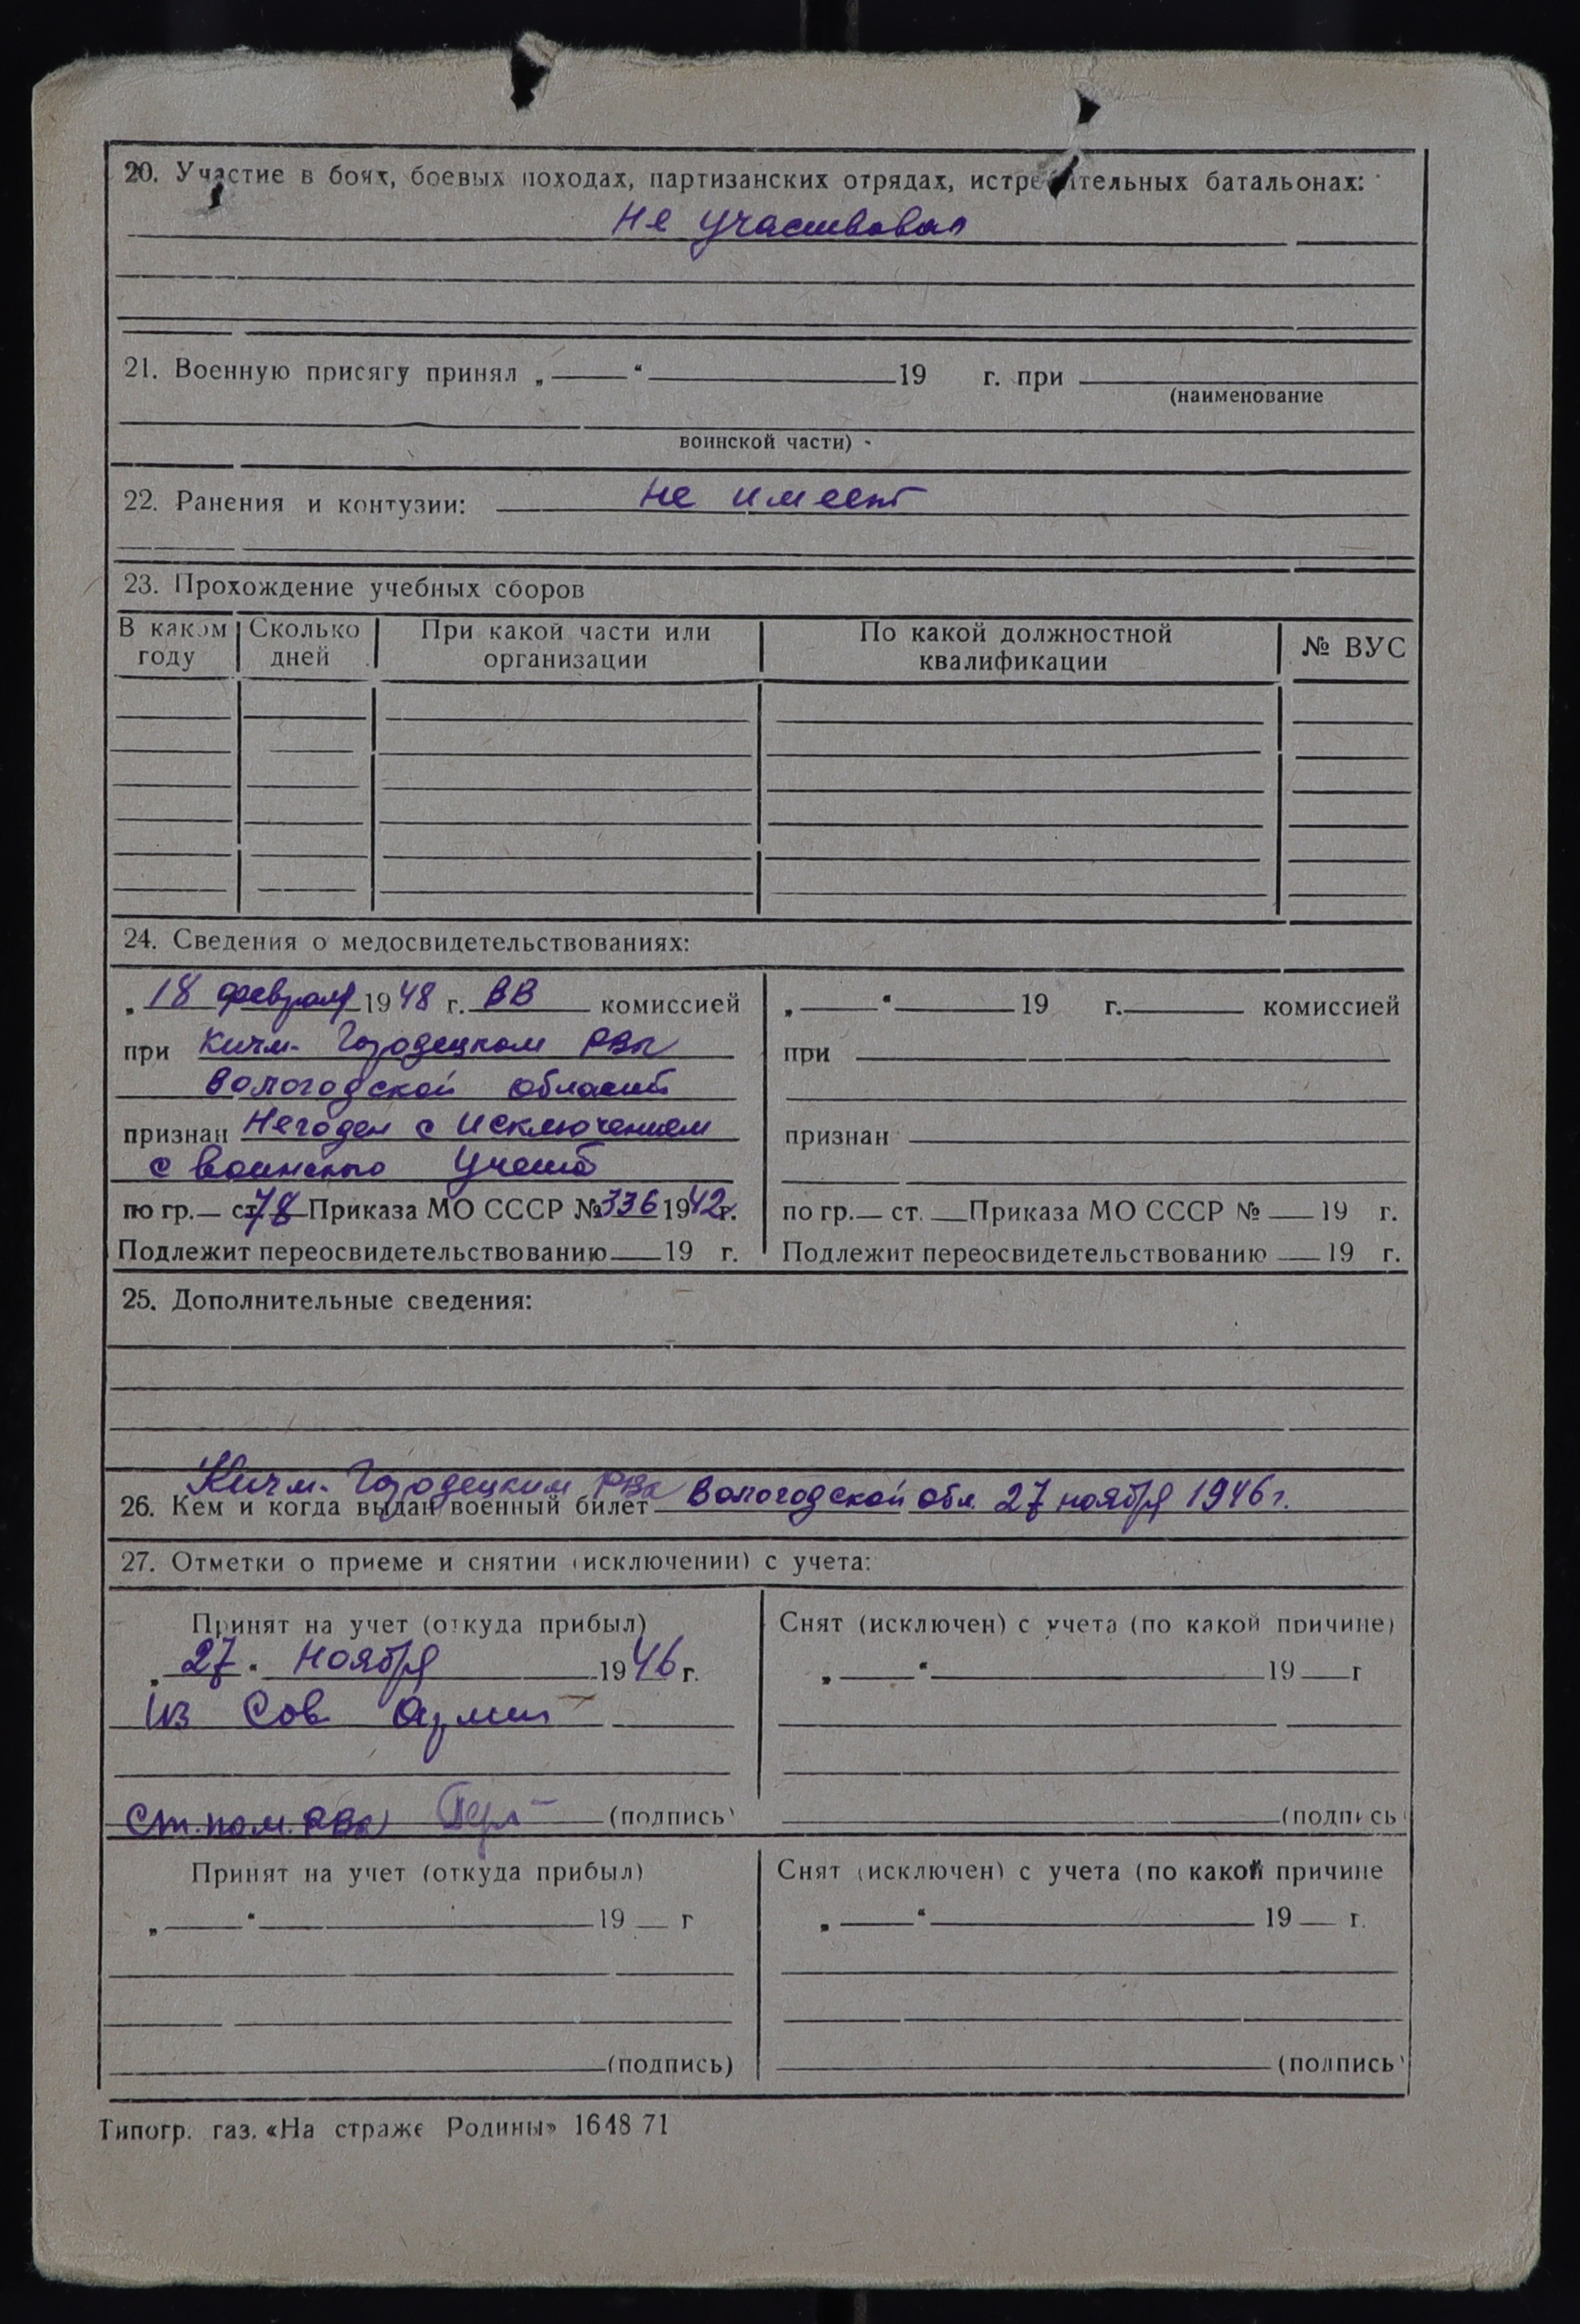 20. Участие в боях, боевых походах, партизанских отрядах, истребительных батальонах:
Не участвовал
21. Военную присягу принял „ “ 19 г. при
(наименование
воинской части)
22. Ранения и контузии: не имеет
23. Прохождение учебных сборов
В каком году Сколько дней При какой части или организации По какой должностной квалификации № ВУС
24. Сведения о медосвидетельствованиях:
„18 февраля 1948 г. ВВ комиссией
при Кичм-Городецком РВк
Вологодской области
признан Негоден с исключением
с воинского учета
по гр.— ст. 78 Приказа МО СССР № 336 1942г.
Подлежит переосвидетельствованию 19 г.
„ “ 19 г. комиссией
при
признан
по гр.— ст. Приказа МО СССР № 19 г.
Подлежит переосвидетельствованию 19 г.
25. Дополнительные сведения:
Кичм-Городецким РВк
26. Кем и когда выдан военный билет Вологодской обл. 27 ноября 1946г.
27. Отметки о приеме и снятии (исключении) с учета:
Принят на учет (откуда прибыл)
„27“ ноября 1946 г.
из Сов Армии
Ст. пом. РВк (подпись)
Снят (исключен) с учета (по какой причине)
„ “ 19 г
(подпись
Принят на учет (откуда прибыл)
„ “ 19 г
(подпись)
Снят (исключен) с учета (по какой причине
„ “ 19 г.
(подпись)
Типогр. газ. «На страже Родины» 1648 71